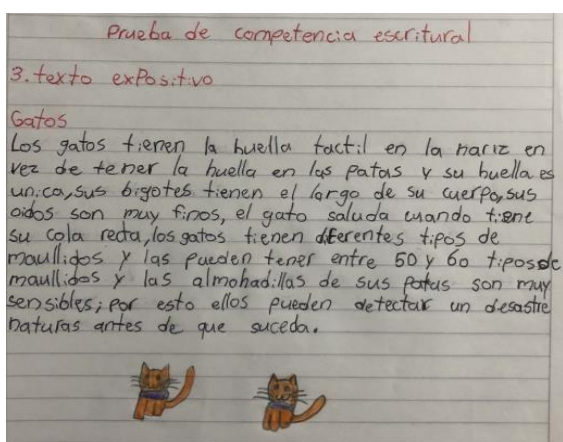 Prueba de competencia escritural
3. texto expositivo
Gatos
Los gatos tienen la huella tactil en la nariz en
vez de tener la huella en las patas y su huella es
unica, sus bigotes tienen el largo de su cuerpo, sus
oidos son muy finos, el gato saluda cuando tiene
su cola recta, los gatos tienen diferentes tipos de
maullidos y las pueden tener entre 50 y 60 tipos de
maullidos y las almohadillas de sus patas son muy
sensibles; por esto ellos pueden detectar un desastre
naturas antes de que suceda.